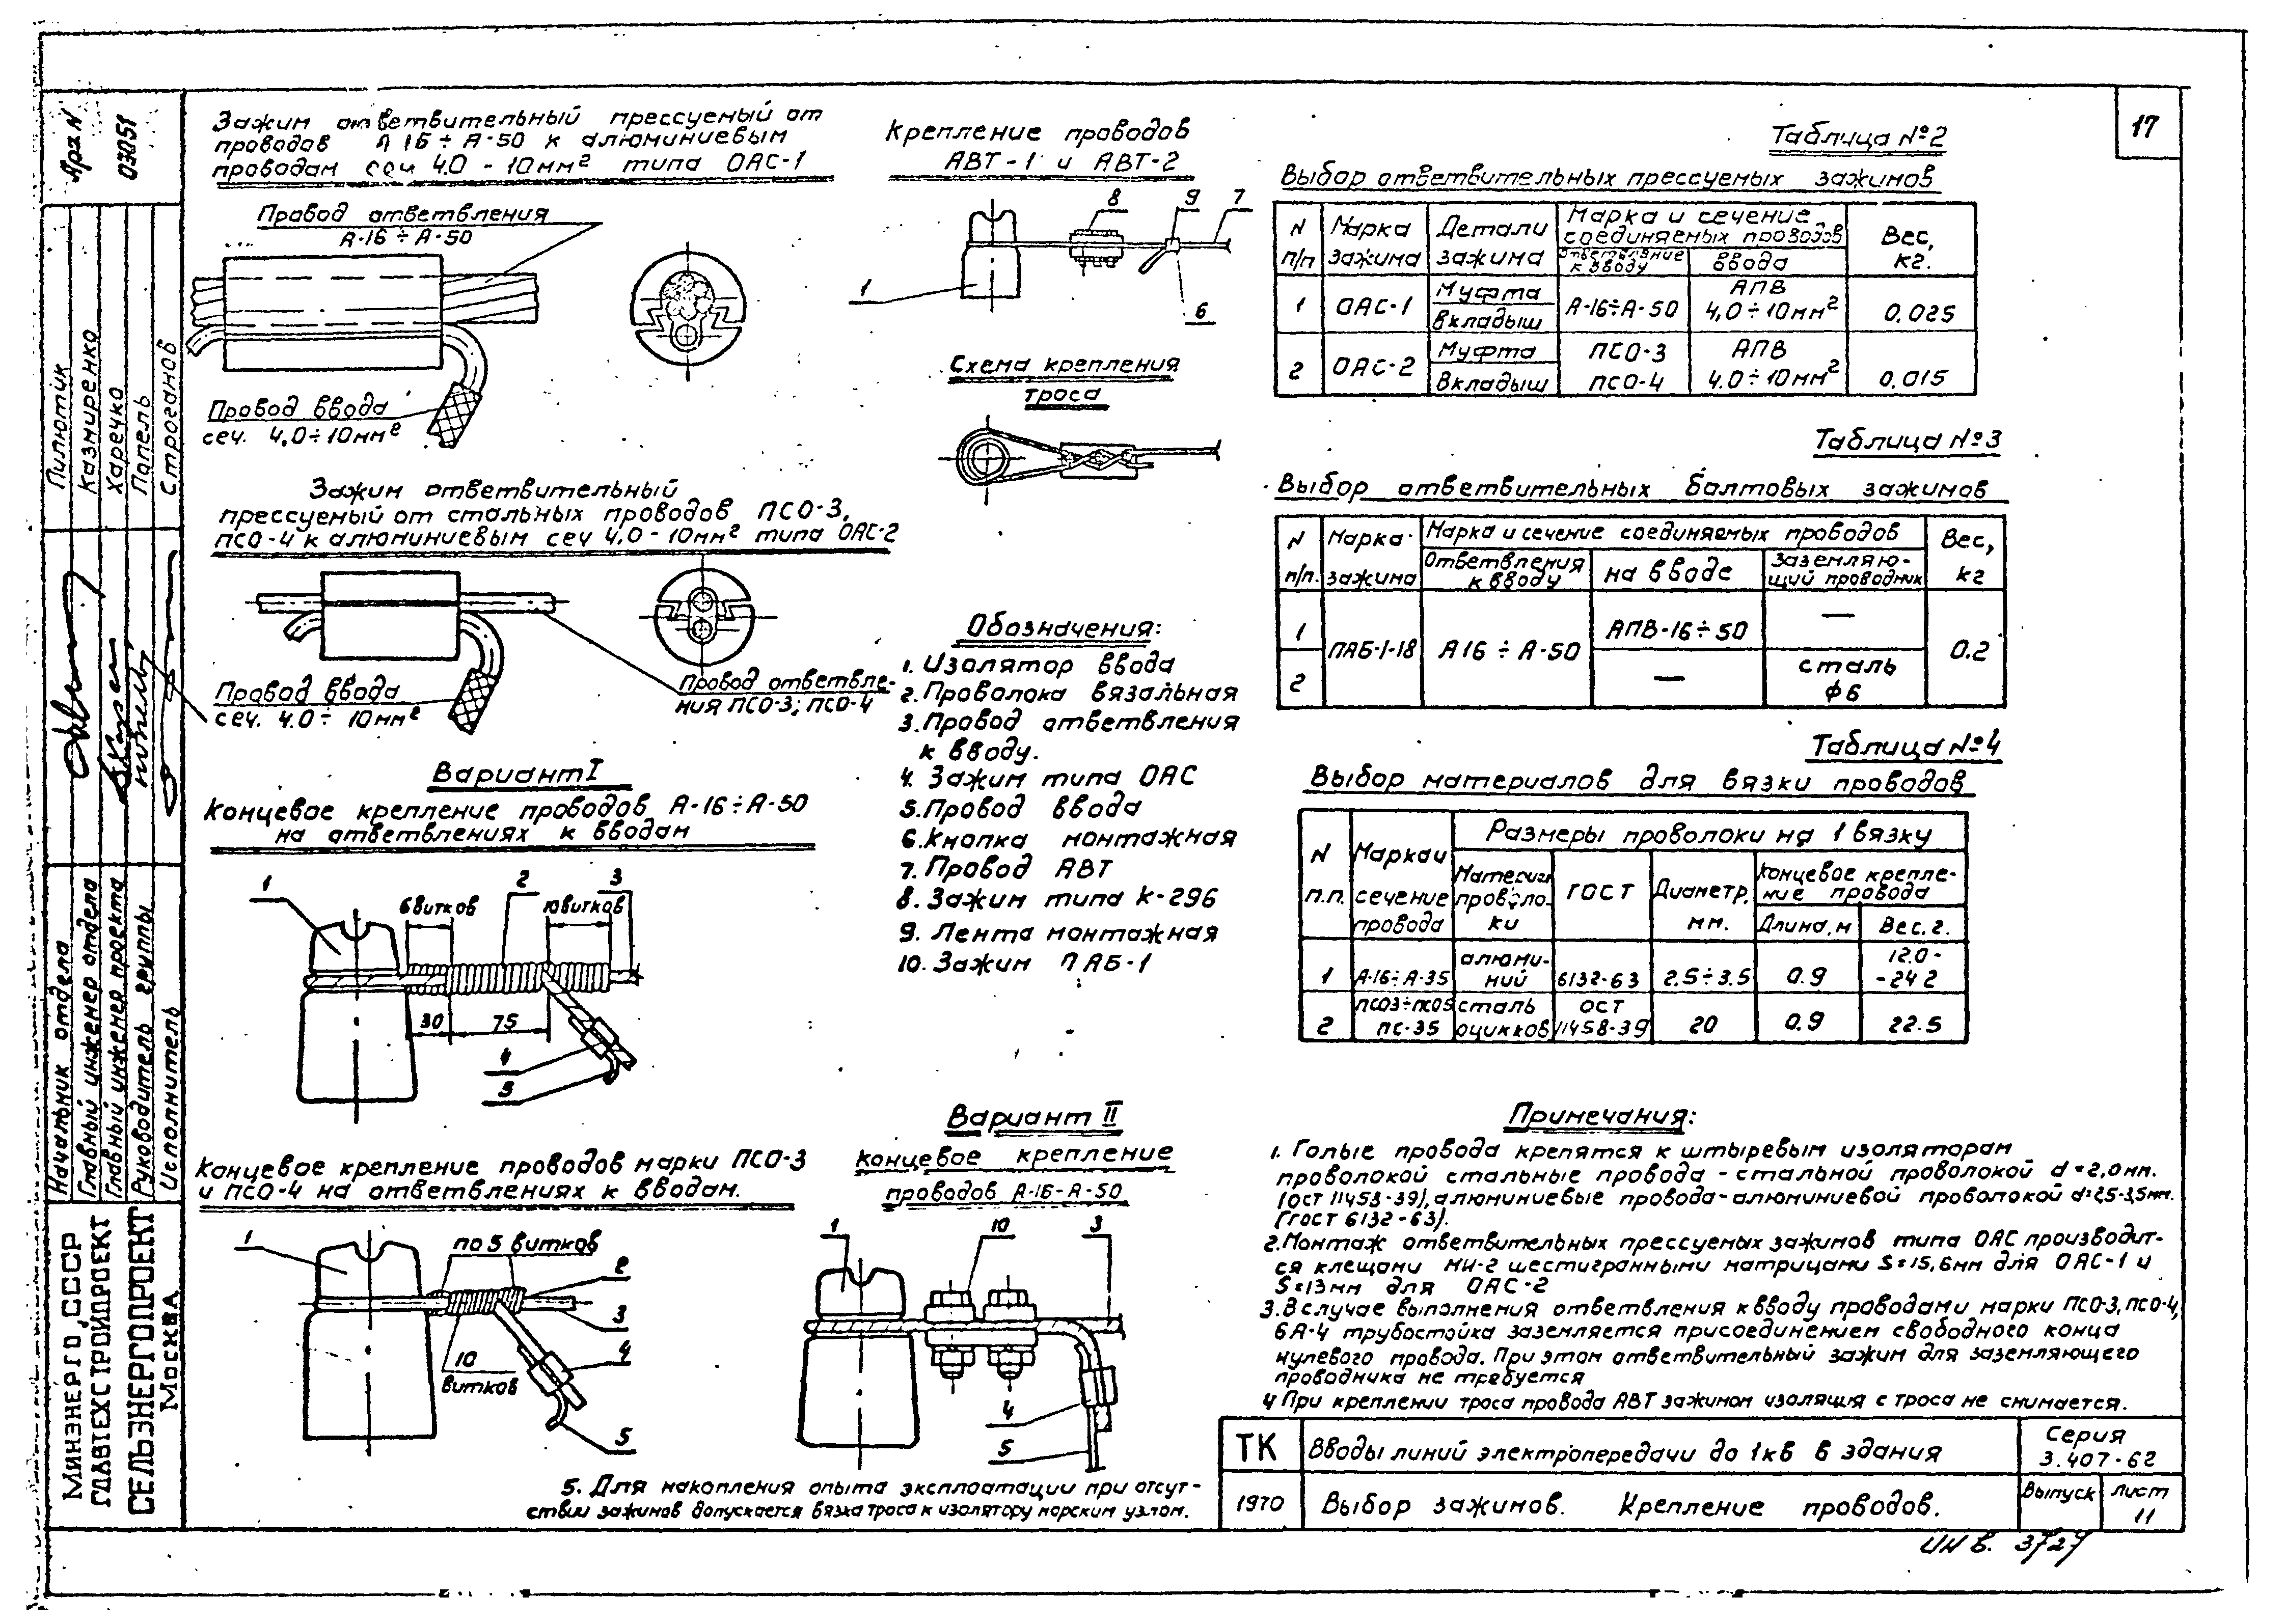 17
Арх N
03051
Пилютик
Казмиренко
Харечко
Папель
Строганов
Начальник отдела
Главный инженер отдела
Главный инженер проекта
Руководитель группы
Исполнитель
МИНЭНЕРГО СССР
ГЛАВТЕХСТРОЙПРОЕКТ
СЕЛЬЭНЕРГОПРОЕКТ
МОСКВА
Зажим ответвительный прессуемый от
проводов А 16 ÷ А-50 к алюминиевым
проводам сеч 4.0 - 10мм² типа ОАС-1
Провод ответвления
А-16 ÷ А-50
Провод ввода
сеч. 4,0÷10мм²
Зажим ответвительный
прессуемый от стальных проводов ПСО-3,
ПСО-4 к алюминиевым сеч 4,0-10мм² типа ОАС-2
Провод ввода
сеч. 4.0 ÷ 10мм²
Провод ответвле-
ния ПСО-3; ПСО-4
Вариант I
Концевое крепление проводов А-16÷А-50
на ответвлениях к вводам
1
6 витков
2
10 витков
3
30
75
4
5
Концевое крепление проводов марки ПСО-3
и ПСО-4 на ответвлениях к вводам.
1
по 5 витков
2
3
10
витков
4
5
Крепление проводов
АВТ-1 и АВТ-2
8
9
7
1
6
Схема крепления
троса
Обозначения:
1. Изолятор ввода
2. Проволока вязальная
3. Провод ответвления
к вводу.
4. Зажим типа ОАС
5. Провод ввода
6. Кнопка монтажная
7. Провод АВТ
8. Зажим типа К-296
9. Лента монтажная
10. Зажим ПАБ-1
Вариант II
Концевое крепление
проводов А-16-А-50
1
10
3
4
5
Таблица №2
Выбор ответвительных прессуемых зажимов
N п/п
Марка зажима
Детали зажима
Марка и сечение соединяемых проводов
Ответвление к вводу
ввода
Вес, кг.
1 ОАС-1 Муфта вкладыш А-16÷А-50 АПВ 4,0÷10мм² 0.025
2 ОАС-2 Муфта Вкладыш ПСО-3 ПСО-4 АПВ 4.0÷10мм² 0,015
Таблица №3
Выбор ответвительных болтовых зажимов
N п/п.
Марка зажима
Марка и сечение соединяемых проводов
Ответвления к вводу
на вводе
Заземляю-
щий проводник
Вес, кг
1 АПВ-16÷50 —
ПАБ-1-18 А16 ÷ А-50 0.2
2 — сталь ф6
Таблица №4
Выбор материалов для вязки проводов
N п.п.
Марка и сечение провода
Размеры проволоки на 1 вязку
Материал проволо-
ки
ГОСТ
Диаметр, мм.
Концевое крепле-
ние провода
Длина, м
Вес, г.
1 А-16÷А-35 алюми-
ний 6132-63 2.5÷3.5 0.9 12.0-
-24 2
2 ПСО3÷ПСО5 ПС-35 сталь оцинков ОСТ 11458-39 20 0.9 22.5
Примечания:
1. Голые провода крепятся к штыревым изоляторам
проволокой стальные провода - стальной проволокой d=2,0мм.
(ОСТ 11453-39), алюминиевые провода-алюминиевой проволокой d=2,5-3,5мм.
(ГОСТ 6132-63).
2. Монтаж ответвительных прессуемых зажимов типа ОАС производит-
ся клещами МИ-2 шестигранными матрицами S=15,6мм для ОАС-1 и
S=13мм для ОАС-2
3. В случае выполнения ответвления к вводу проводами марки ПСО-3, ПСО-4,
БА-4 трубостойка заземляется присоединением свободного конца
нулевого провода. При этом ответвительный зажим для заземляющего
проводника не требуется
4 При креплении троса провода АВТ зажимом изоляция с троса не снимается.
5. Для накопления опыта эксплоатации при отсут-
ствии зажимов допускается вязка троса к изолятору морским узлом.
ТК
Вводы линий электропередачи до 1кв в здания
Серия
3.407-62
1970
Выбор зажимов. Крепление проводов.
Выпуск
Лист
11
ИНВ. 3727